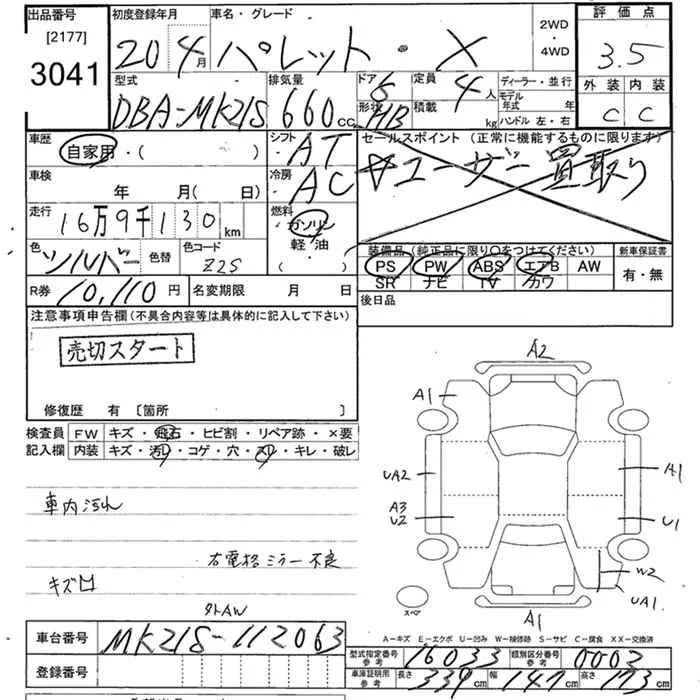 出品番号 初度登録年月 車名・グレード 2WD・4WD 評価点
[2177]
3041 20年4月 パレット・X 3.5
型式 排気量 ドア 定員 ディーラー・並行 外装 内装
DBA-MK21S 660cc 5 4人 モデル年式 年 C C
形状 HB 積載 kg ハンドル 左・右
車歴 自家用・( ) シフト AT セールスポイント(正常に機能するものに限ります)
車検 年 月( 日) 冷房 AC ユーザー買取り
走行 16万9千130km 燃料 ガソリン
軽・油
( )
色 シルバー 色替 色コード Z2S
装備品(純正品に限り○をつけてください) 新車保証書
PS PW ABS エアB AW 有・無
SR ナビ TV カワ
R券 10,110円 名変期限 月 日 後日品
注意事項申告欄(不具合内容等は具体的に記入して下さい)
売切スタート
修復歴 有 〔箇所 〕
検査員 FW キズ・飛石・ヒビ割・リペア跡・×要
記入欄 内装 キズ・汚レ・コゲ・穴・スレ・キレ・破レ
車内汚れ
右電格ミラー不良
キズ凹
外AW
A2
A1
UA2 A1
A3
U2 U1
W2
UA1
スペア
A1
A-キズ E-エクボ U-凹み W-補修跡 S-サビ C-腐食 XX-交換済
車台番号 MK21S-112063
型式指定番号 参考 16033 類別区分番号 参考 0003
登録番号
車庫証明用 参考 長さ 339 幅 147 高さ 173cm